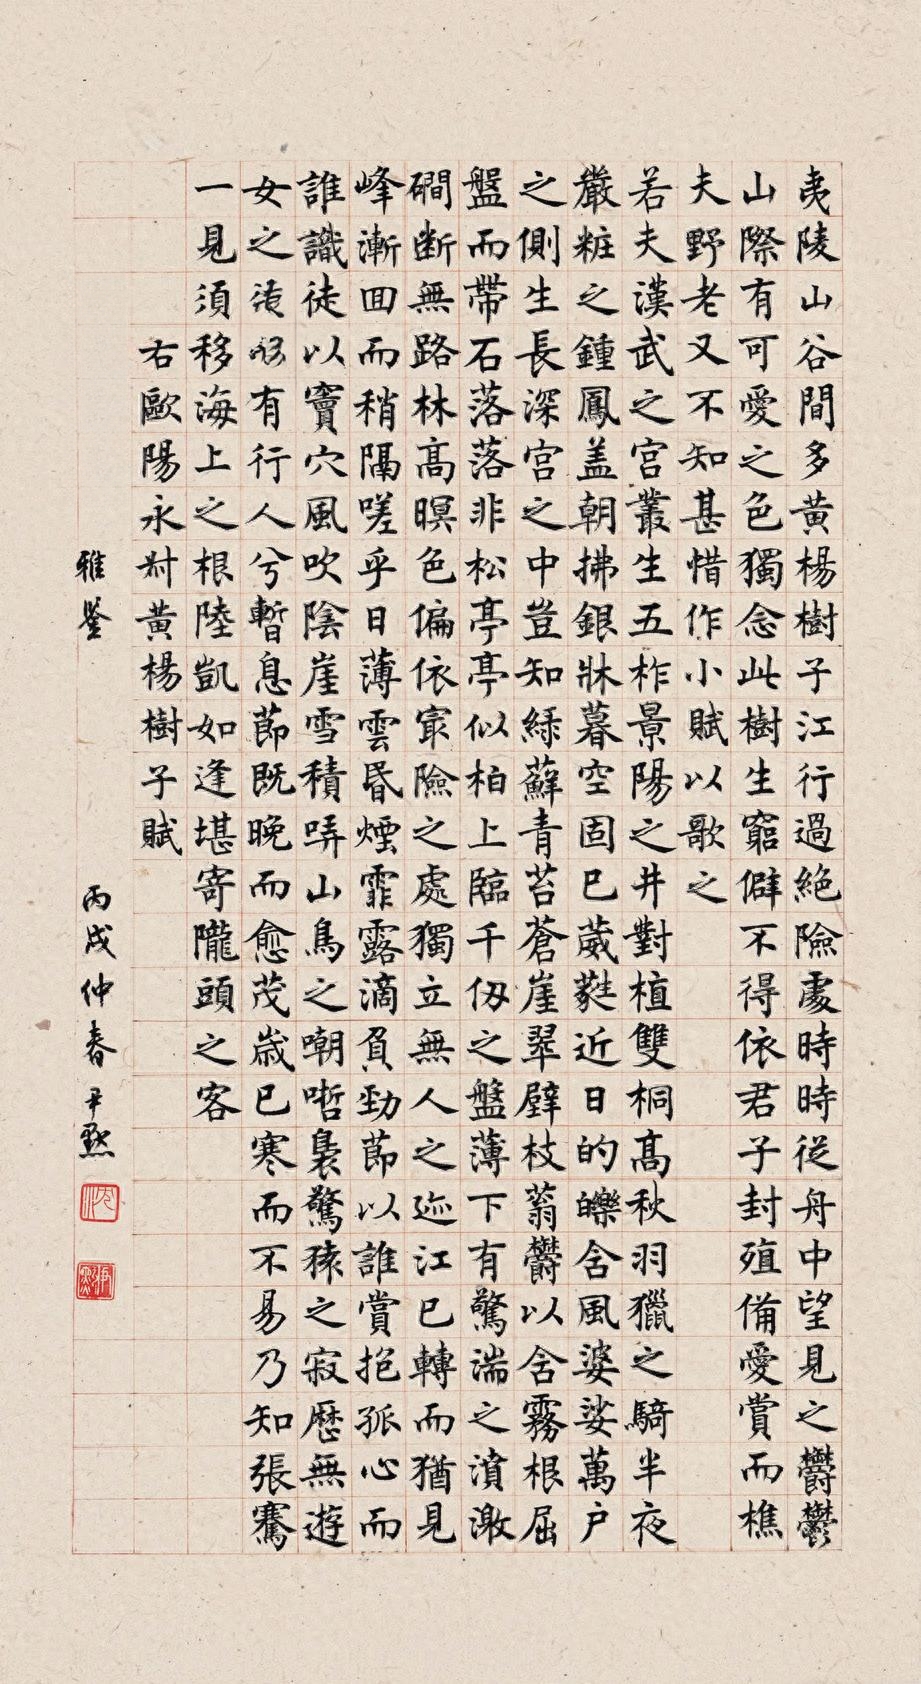 夷陵山谷間多黃楊樹子江行過絶險處時時從舟中望見之鬱鬱
山際有可愛之色獨念此樹生窮僻不得依君子封殖備愛賞而樵
夫野老又不知甚惜作小賦以歌之
若夫漢武之宮叢生五柞景陽之井對植雙桐高秋羽獵之騎半夜
嚴粧之鍾鳳盖朝拂銀牀暮空固巳葳蕤近日的皪含風婆娑萬戶
之側生長深宮之中豈知綠蘚青苔蒼崖翠壁枝蓊鬱以含霧根屈
盤而帶石落落非松亭亭似柏上臨千仭之盤薄下有驚湍之濆激
磵断無路林高暝色偏依㝡險之處獨立無人之迹江已轉而猶見
峰漸囬而稍隔嗟乎日薄雲昏煙霏露滴負勁莭以誰賞抱孤心而
誰識徒以竇穴風吹陰崖雪積哢山鳥之嘲哳裊驚猿之寂歷無遊
女之有行人兮暫息莭既晚而愈茂歲巳寒而不易乃知張騫
一見須移海上之根陸凱如逢堪寄隴頭之客
右歐陽永尗黃楊樹子賦
雅鍳
丙戌仲春尹默